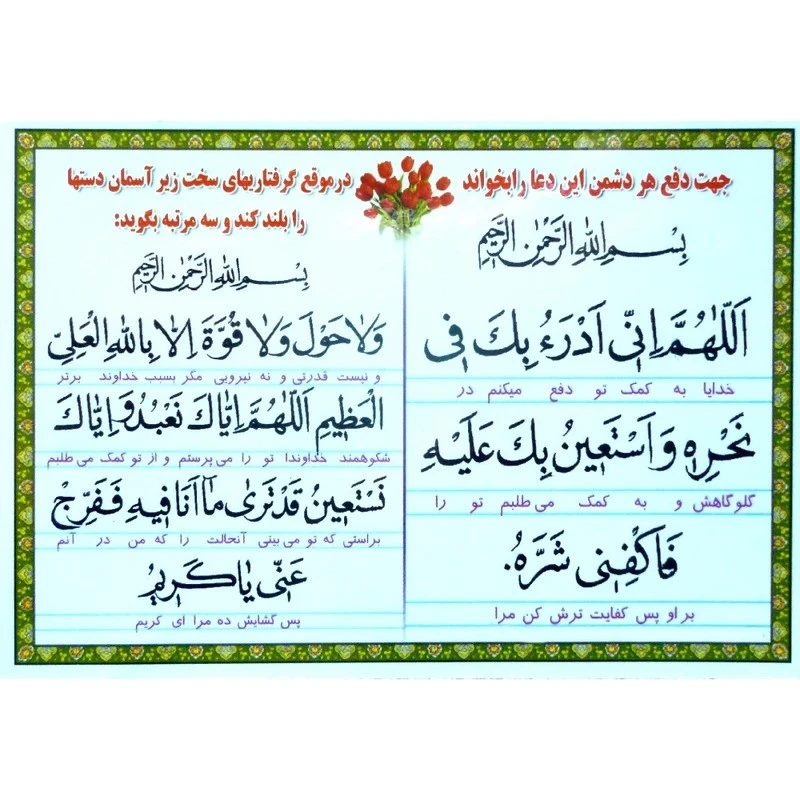 جهت دفع هر دشمن این دعا رابخواند
بِسْمِ اللهِ الرَّحْمٰنِ الرَّحِیْمِ
اَللّٰهُمَّ اِنّی اَدْرَءُ بِكَ فی
خدایا به کمک تو دفع میکنم در
نَحْرِهِ وَاَسْتَعینُ بِكَ عَلَیْهِ
گلوگاهش و به کمک می‌طلبم تو را
فَاکْفِنی شَرَّهُ.
بر او پس کفایت ترش کن مرا
در موقع گرفتاریهای سخت زیر آسمان دستها
را بلند کند و سه مرتبه بگوید:
بِسْمِ اللهِ الرَّحْمٰنِ الرَّحِیْمِ
وَلاٰ حَوْلَ وَلاٰ قُوَّةَ اِلاّٰ بِاللهِ الْعَلِیِّ
و نیست قدرتی و نه نیرویی مگر بسبب خداوند برتر
الْعَظیمِ اَللّٰهُمَّ اِیّٰاكَ نَعْبُدُ وَ اِیّٰاكَ
شکوهمند خداوندا تو را می‌پرستم و از تو کمک می‌طلبم
نَسْتَعینُ قَدْ تَریٰ مٰا اَنَا فیهِ فَفَرِّجْ
براستی که تو می‌بینی آنحالت را که من در آنم
عَنّی یٰا کَریمُ
پس گشایش ده مرا ای کریم